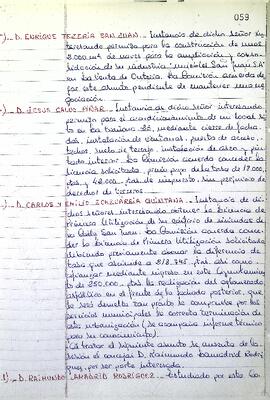 059
-). D. ENRIQUE TEJERÍA SAN JUAN. Instancia de dicho Señor in-
teresando permiso para la construcción de unos
2.000 m² de naves para la ampliación y conso-
lidación de su industria "muebles San Juan S.A"
en La Venta de Ontoria. La Comisión acuerda de-
jar este asunto pendiente de mantener una ne-
gociación.
-). D. JESUS CALVO PIÑAR. Instancia de dicho Señor interesando
permiso para el acondicionamiento de un local
en La Bañeza 25, mediante cierre de facha-
das, instalación de ventanal, puerta de acceso,
techos, suelo de terrazo, instalación de aseo y pin-
tado interior. La Comisión acuerda conceder la
licencia solicitada, previo pago de la tasa de 17.000,
y 42.000 ptas de impuesto. Sin perjuicio de
derechos de terceros.
-). D. CARLOS Y EMILIO ECHEVARRÍA QUINTANA. Instancia de di-
chos Señores interesando obtener la licencia de
Primera Utilización de un edificio de viviendas de
la Calle San Juan. La Comisión acuerda conce-
der la licencia de Primera Utilización solicitada
debiendo previamente abonar la diferencia de
tasa que asciende a 818.745 ptas, así como
afianzar mediante ingreso en este Ayuntamien-
to de 250.000 ptas la realización del aglomerado
asfáltico en el frente de la fachada posterior, que
le será devuelto una vez se compruebe por los
servicios municipales la correcta terminación de
esta urbanización (se acompaña informe técnico
para su conocimiento).
Al tratar el siguiente asunto se ausenta de la
sesión el concejal D. Raimundo Lamadrid Rodrí-
guez, por ser parte interesada.
). D. RAIMUNDO LAMADRID RODRÍGUEZ. Estudiado por esta Co-